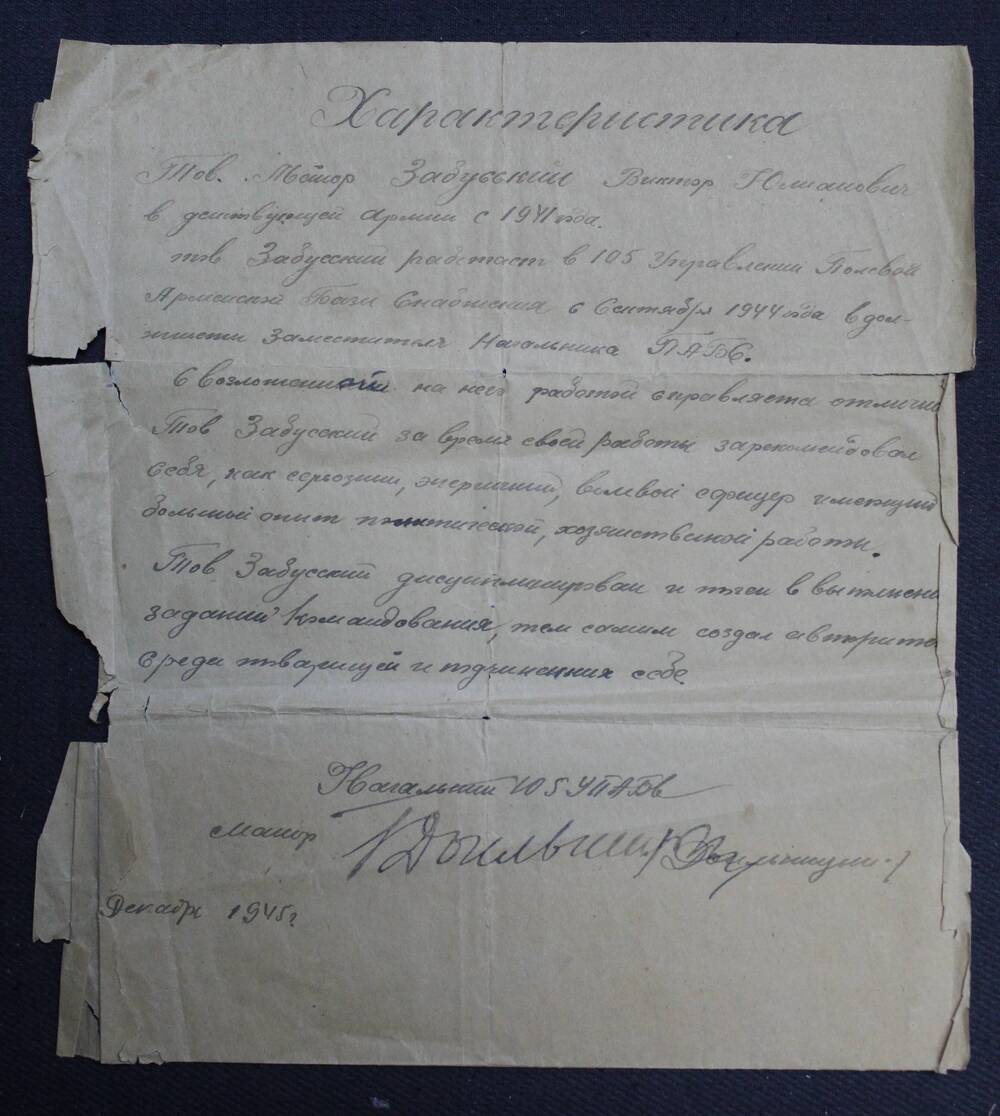 Характеристика
Тов. Майор Забусский Виктор Юлианович
в действующей армии с 1941 года.
тов Забусский работает в 105 Управлении Полевой
Армейской Базы Снабжения с Сентября 1944 года в дол-
жности Заместителя Начальника ПАБС.
С возложенной на него работой справляется отлично
Тов Забусский за время своей работы зарекомендовал
себя, как серьозний, энергичний, волевой офицер имеющий
большой опыт политической, хозяйственой работы.
Тов Забусский дисциплинирован и точен в выполнени
заданий Командования, тем самим создал авторите
среди товарищей и подчиненних себе.
Начальник 105 УПАБс
майор
Декабрь 1945г